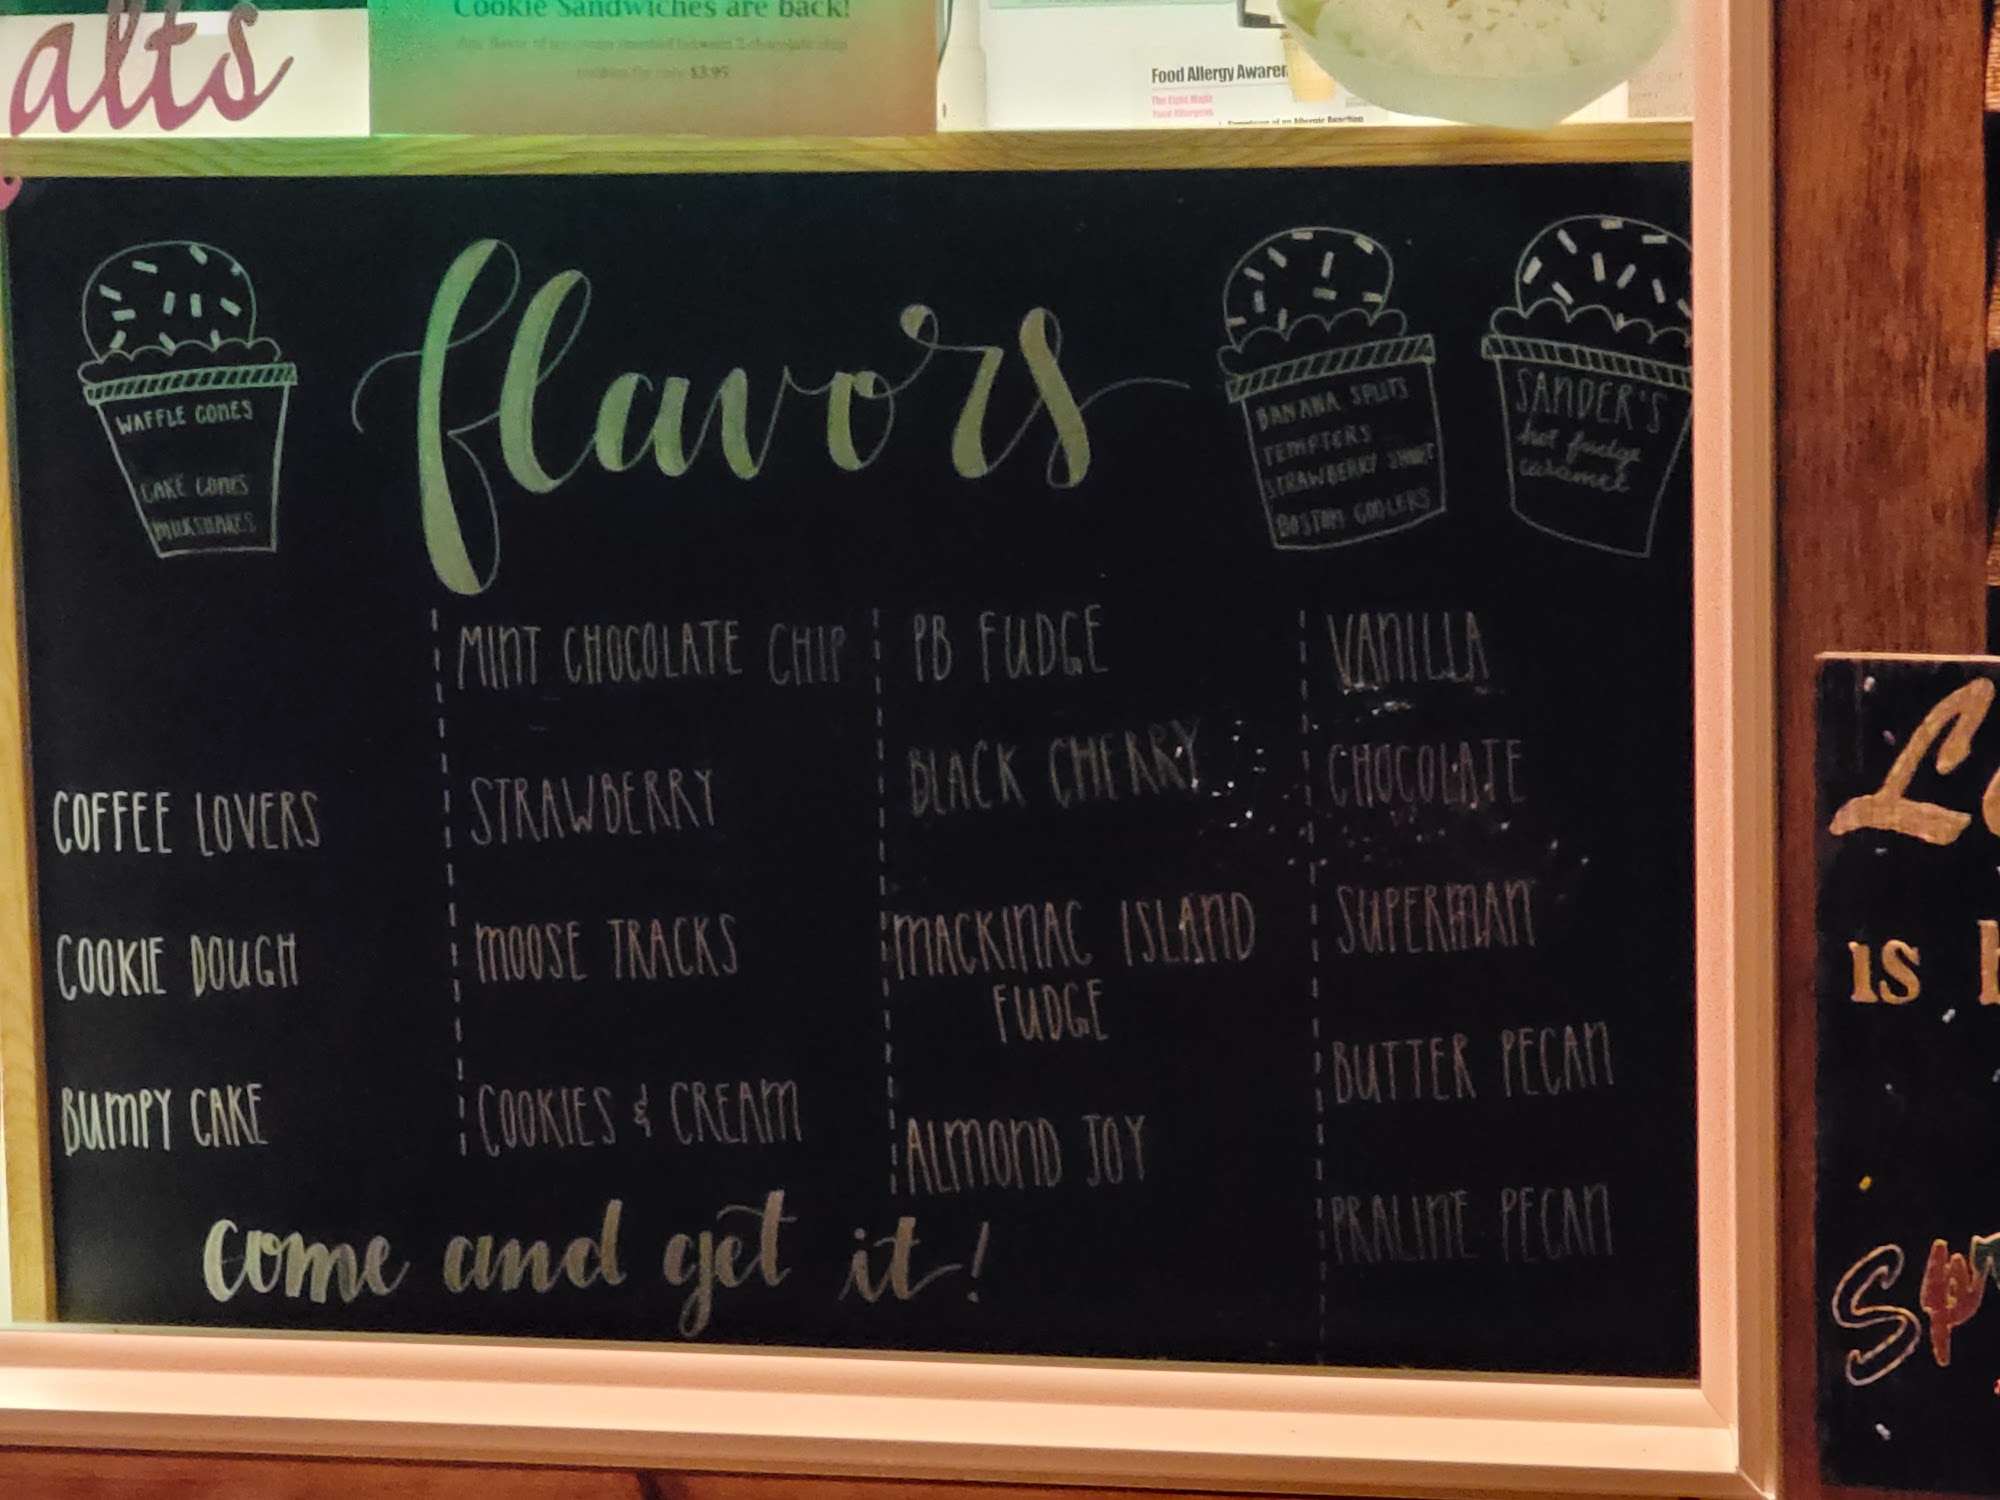 alts
Cookie Sandwiches are back!
Any flavor of ice cream inserted between 2 chocolate chip
cookies for only $3.95
Food Allergy Awaren
The Eight Major
Food Allergens
Symptoms of an Allergic Reaction
flavors
WAFFLE CONES
CAKE CONES
MILKSHAKES
BANANA SPLITS
TEMPTERS
STRAWBERRY SHORT
BOSTON COOLERS
SANDER'S
hot fudge
caramel
COFFEE LOVERS
COOKIE DOUGH
BUMPY CAKE
MINT CHOCOLATE CHIP
STRAWBERRY
MOOSE TRACKS
COOKIES & CREAM
PB FUDGE
BLACK CHERRY
MACKINAC ISLAND
FUDGE
ALMOND JOY
VANILLA
CHOCOLATE
SUPERMAN
BUTTER PECAN
PRALINE PECAN
come and get it!
is